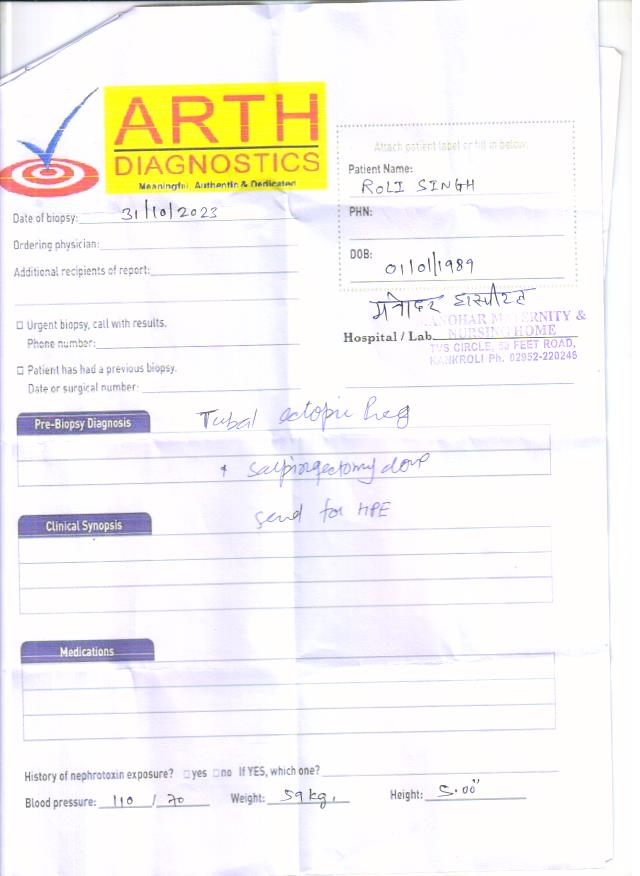 ARTH
DIAGNOSTICS
Meaningful, Authentic & Dedicated
Attach patient label or fill in below.
Patient Name:
ROLI SINGH
PHN:
DOB:
01/01/1989
Date of biopsy: 31/10/2023
Ordering physician:
Additional recipients of report:
Urgent biopsy, call with results.
Phone number:
Patient has had a previous biopsy.
Date or surgical number:
Hospital / Lab.
MANOHAR MATERNITY &
NURSING HOME
TVS CIRCLE, 50 FEET ROAD,
KANKROLI Ph. 02952-220246
Pre-Biopsy Diagnosis
Tubal ectopic Preg
Salpingectomy done
send for HPE
Clinical Synopsis
Medications
History of nephrotoxin exposure? yes no If YES, which one?
Blood pressure: 110 / 70 Weight: 59 kg. Height: 5.00"